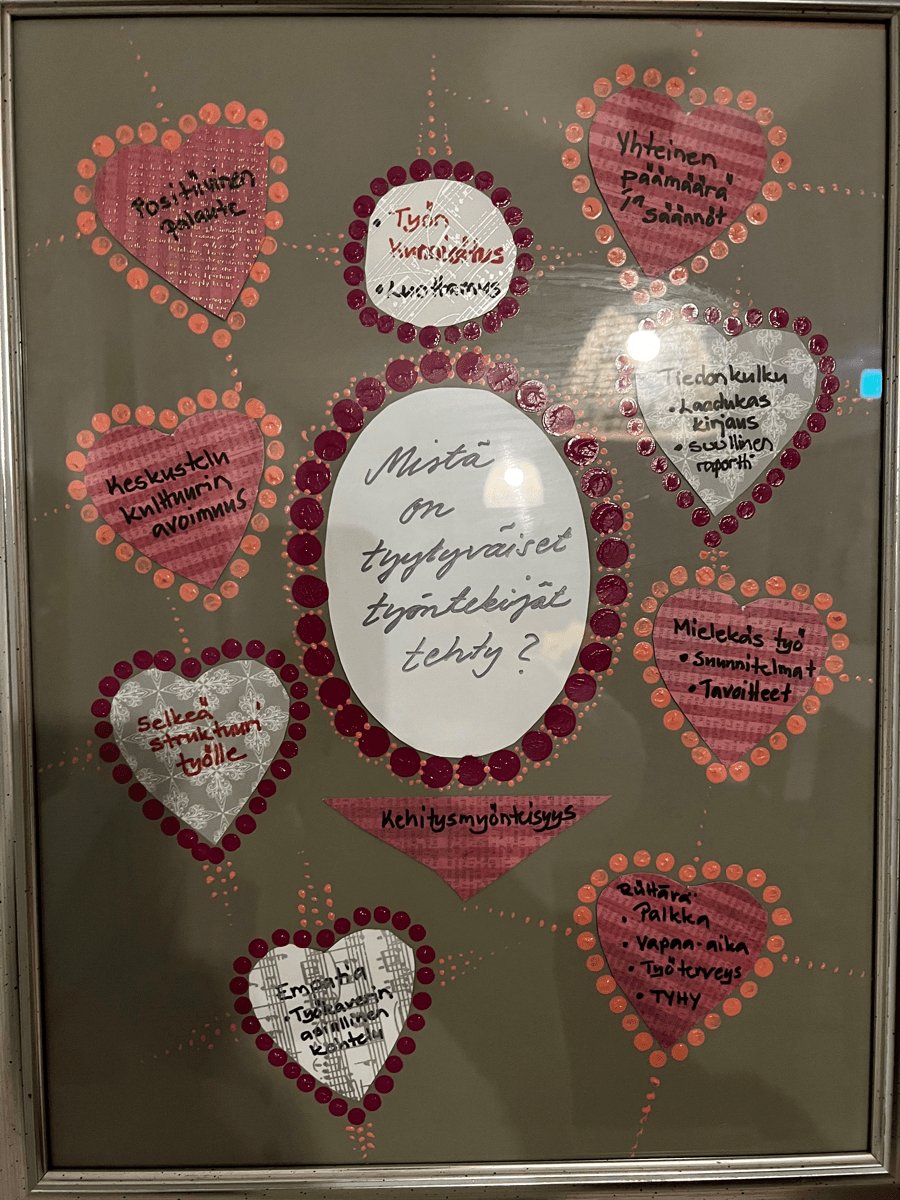 Positiivinen
palaute
• Työn
kunnioitus
• Luottamus
Yhteinen
päämäärä
ja säännöt
Tiedonkulku
• Laadukas
kirjaus
• suullinen
raportti
Keskustelu
kulttuurin
avoimuus
Mistä
on
tyytyväiset
työntekijät
tehty?
Mielekäs työ
• Suunnitelmat
• Tavoitteet
Selkeä
struktuuri
työlle
Kehitysmyönteisyys
Riittävä:
• Palkka
• Vapaa-aika
• Työterveys
• TYHY
Empatia
• Työkaverin
asiallinen
kohtelu